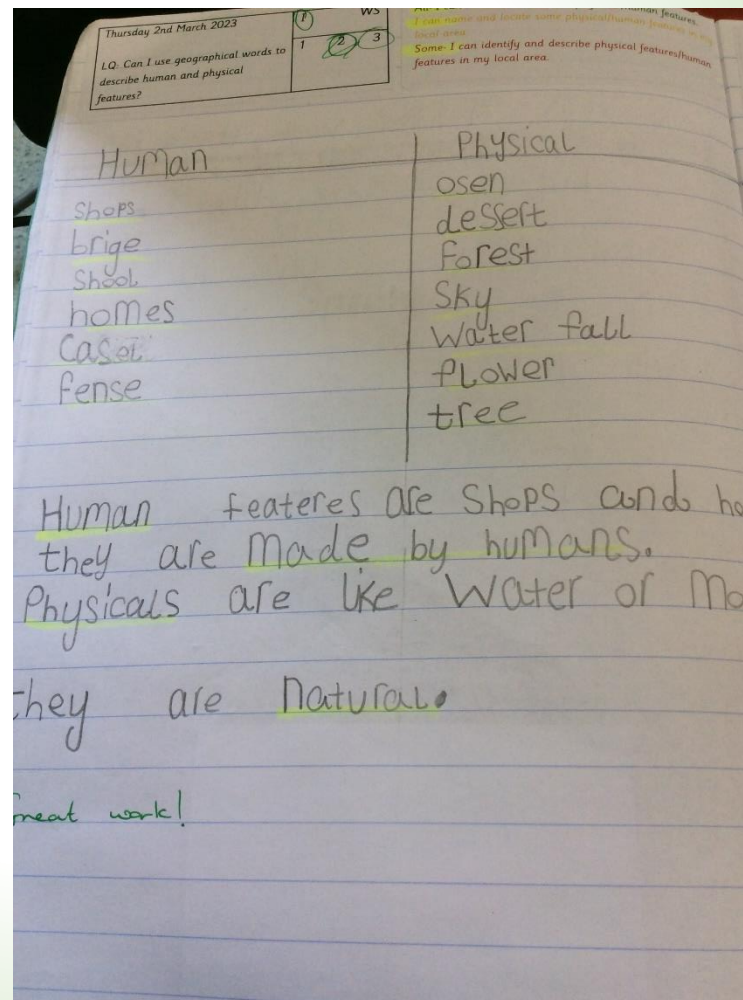 Thursday 2nd March 2023
LQ: Can I use geographical words to
describe human and physical
features?
1
WS
1 2 3
human features.
I can name and locate some physical/human features in my
local area
Some- I can identify and describe physical features/human
features in my local area.
Human Physical
shops osen
brige dessert
Shool forest
homes Sky
Casel Water fall
fense flower
tree
Human feateres are Shops and ho
they are made by humans.
Physicals are like Water or Mo
they are natural.
Great work!